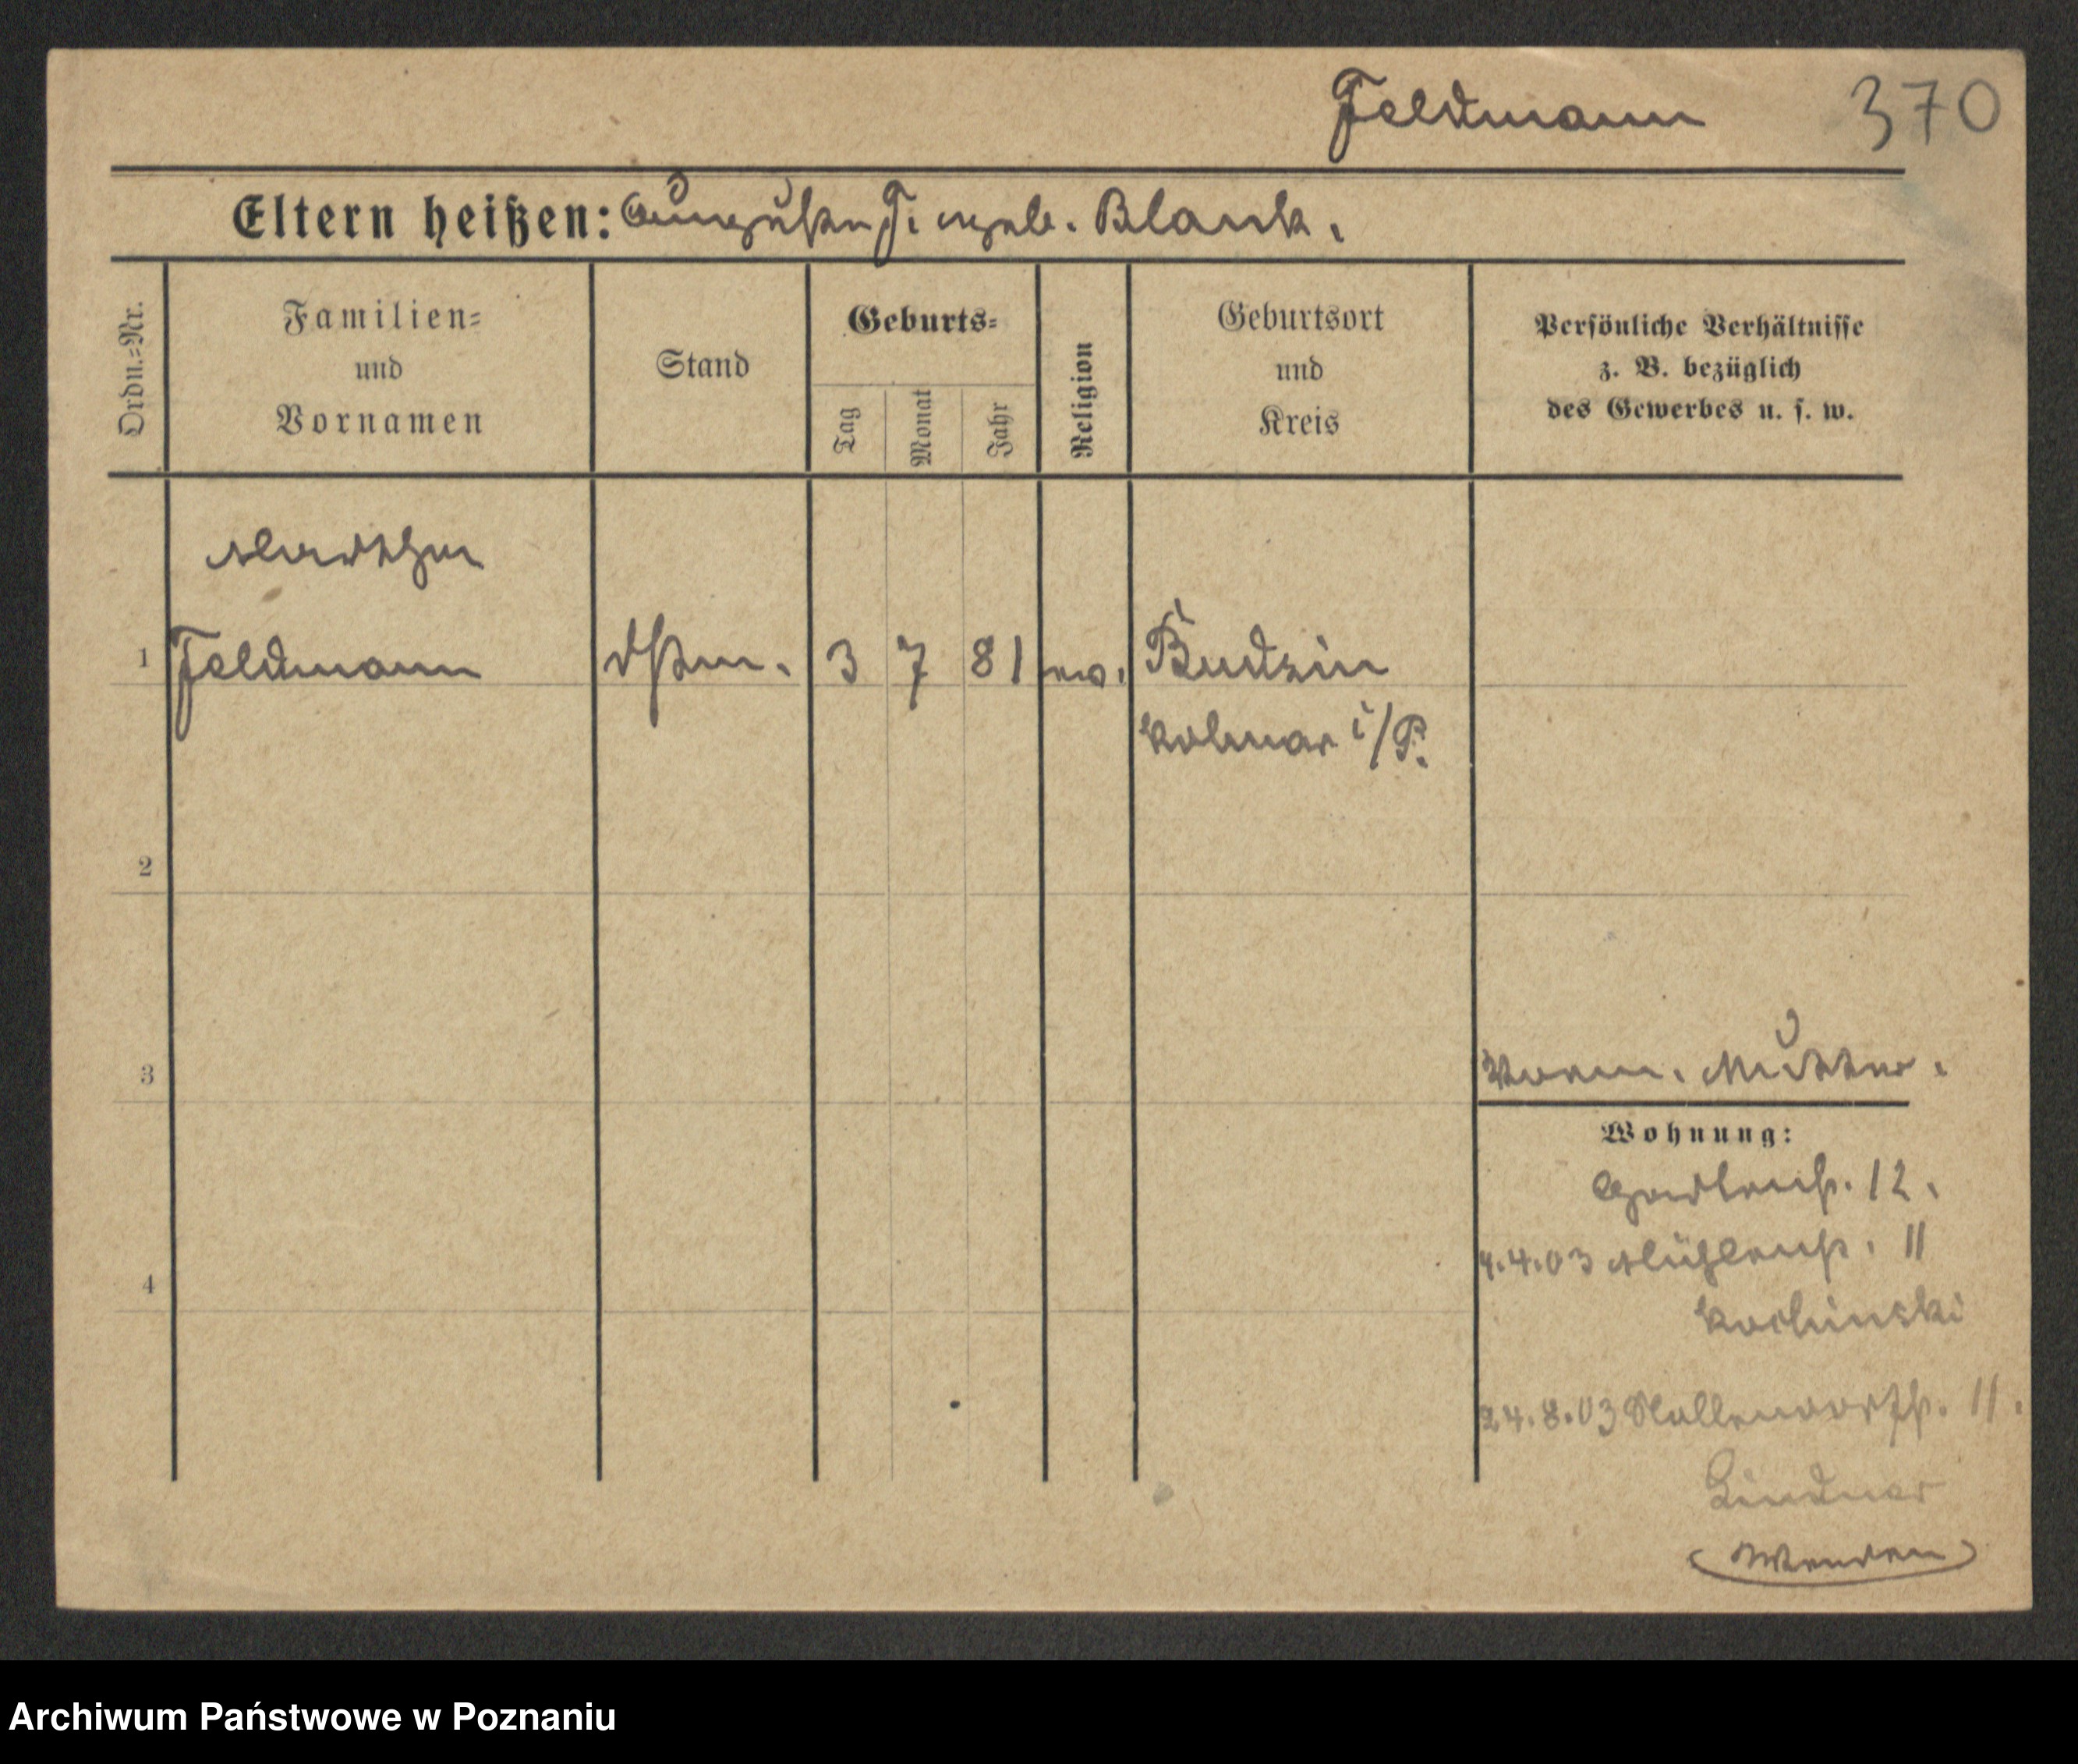 Feldmann 370
Eltern heißen: Auguste F. geb. Blank.
Ordn.=Nr.
Familien=
und
Vornamen
Stand
Geburts=
Tag
Monat
Jahr
Religion
Geburtsort
und
Kreis
Persönliche Verhältnisse
z. B. bezüglich
des Gewerbes u. s. w.
Martha
1 Feldmann 3 7 81 ev. Budzin
Kolmar i/P.
2
3
Vorm. Mutter.
Wohnung:
Gartenstr. 12.
4.4.03 Mühlenstr. 11
4
24.8.03 Nollendorfstr. 11.
Lindner
Wenden
Archiwum Państwowe w Poznaniu